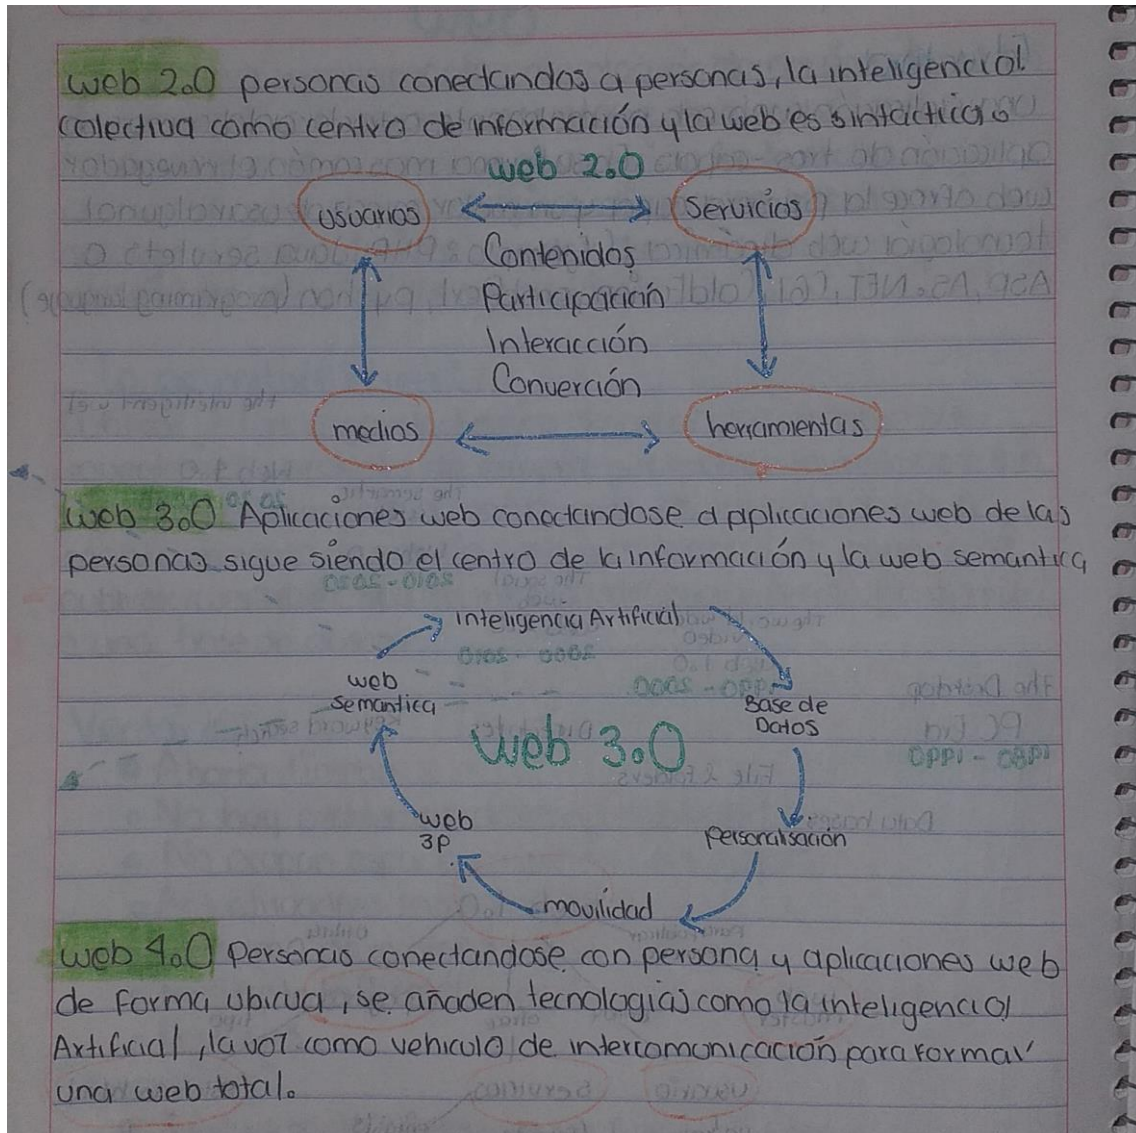 web 2.0 personas conectandos a personas, la inteligencia
colectiva como centro de información y la web es sintáctica.
web 2.0
usuarios
Servicios
Contenidos
Participación
Interacción
Converción
medios
herramientas
web 3.0 Aplicaciones web conectandose a aplicaciones web de las
personas sigue siendo el centro de la información y la web semantica
inteligencia Artificial
web
semantica
Base de
Datos
web 3.0
web
3P
personalisación
movilidad
web 4.0 Personas conectandose con persona y aplicaciones web
de forma ubicua, se añaden tecnologías como la inteligencia
Artificial, la voz como vehiculo de intercomunicación para formar
una web total.